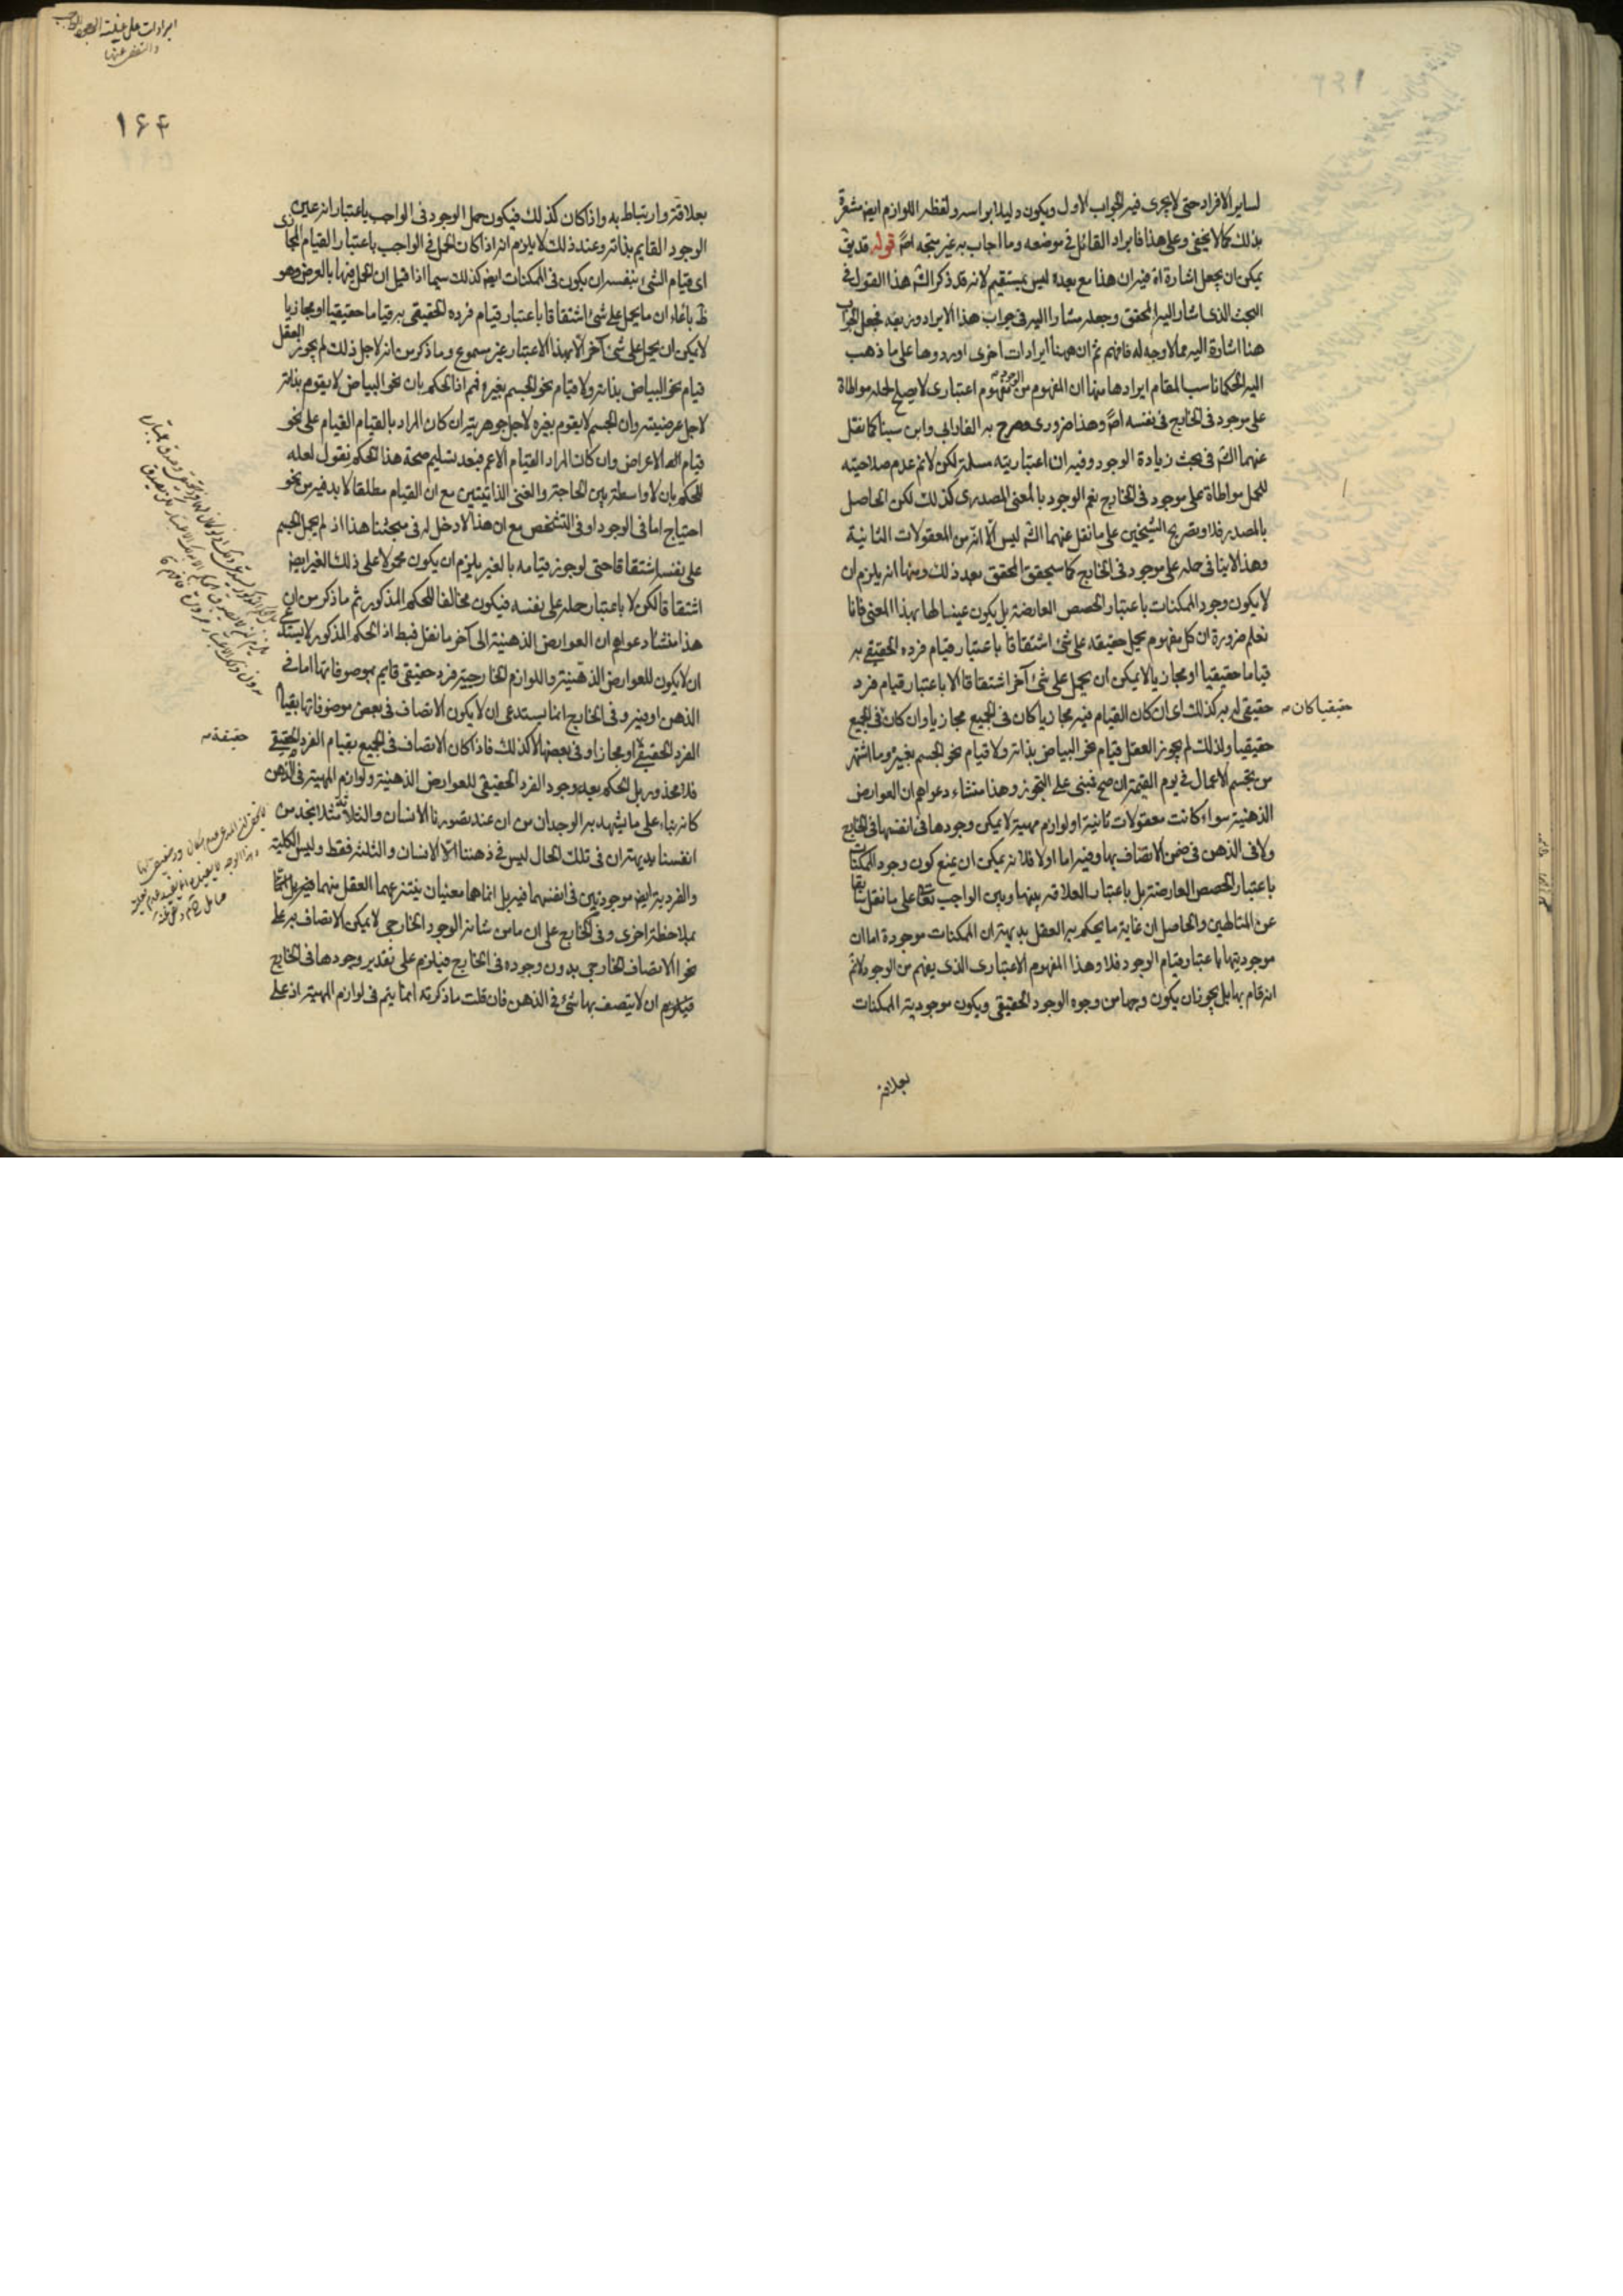 لساير الافراد حتى لا يجرى فيه الجواب الاول ويكون دليلا براسه ولفظه اللوازم ايض مشعرة
بذلك كما لا يخفى وعلى هذا فايراد القائل في موضعه وما اجاب به غير متجه اصلا قوله قد يق
يمكن ان يجعل اشارة اه فيه ان هذا مع بعده ليس بمستقيم لانه قد ذكر الش هذا القول في
البحث الذى اشار اليه المحقق وجعله مشارا اليه في جواب هذا الايراد وزيفه فجعل الجواب
هنا اشارة اليه مما لا وجه له فافهم ثم ان ههنا ايرادات اخرى اوردوها على ما ذهب
اليه الحكما ناسب المقام ايرادها منها ان المفهوم من الوجود مفهوم اعتبارى لا يصلح لحمله مواطاة
على موجود في الخارج في نفسه اصلا وهذا ضرورى صرح به الفارابي وابن سينا كما نقل
عنهما الش في بحث زيادة الوجود وفيه ان اعتباريته مسلمة لكن لانم عدم صلاحيته
للحمل مواطاة على موجود في الخارج نعم الوجود بالمعنى المصدرى كذلك لكن الحاصل
بالمصدر فلا وتصريح الشيخين على ما نقل عنهما الش ليس الا انه من المعقولات الثانية
وهذا لا ينافى حمله على موجود في الخارج كما سيحقق المحقق بعد ذلك ومنها انه يلزم ان
لا يكون وجود الممكنات باعتبار الحصص العارضة بل يكون عينا لها بهذا المعنى فانا
نعلم ضرورة ان كل مفهوم يحمل حقيقة على شئ اشتقاقا باعتبار قيام فرده الحقيقى به
قياما حقيقيا او مجازيا لا يمكن ان يحمل على شئ آخر اشتقاقا الا باعتبار قيام فرد
حقيقى له به كذلك اى ان كان القيام فيه مجازيا كان في الجميع مجازيا وان كان في الجميع
حقيقيا كان
حقيقيا ولذلك لم يجوز العقل قيام نحو البياض بذاته ولا قيام نحو الجسم بغيره وما اشتهر
من تجسم الاعمال في يوم القيمة ان صح فمبنى على التجوز وهذا منشاء دعواهم ان العوارض
الذهنية سواء كانت معقولات ثانية او لوازم مهية لا يمكن وجودها في انفسها في الخارج
ولا في الذهن في ضمن الاتصاف بها وفيه اما اولا فلانه يمكن ان يمنع كون وجود الممكنات
باعتبار الحصص العارضة بل باعتبار العلاقة بينها وبين الواجب تعالى على ما نقل سابقا
عن المتالهين والحاصل ان غاية ما يحكم به العقل بديهة ان الممكنات موجودة اما ان
موجوديتها باعتبار قيام الوجود فلا وهذا المفهوم الاعتبارى الذى يفهم من الوجود لانم
انه قام بها بل يجوز ان يكون وجها من وجوه الوجود الحقيقى ويكون موجودية الممكنات
بعلاقة
ايرادات على عينية الوجود للواجب
والتفصى عنها
١٦٤
بعلاقة وارتباط به واذا كان كذلك فيكون حمل الوجود في الواجب باعتبار انه عين
الوجود القايم بذاته وعند ذلك لا يلزم انه اذا كان الحمل في الواجب باعتبار القيام المجازى
اى قيام الشئ بنفسه ان يكون في الممكنات ايض كذلك سيما اذا قيل ان الحمل فيها بالعرض وهو
ظ فادعاء ان ما يحمل على شئ اشتقاقا باعتبار قيام فرده الحقيقى به قياما حقيقيا او مجازيا
لا يمكن ان يحمل على شئ آخر الا بهذا الاعتبار غير مسموع وما ذكر من انه لاجل ذلك لم يجوز العقل
قيام نحو البياض بذاته ولا قيام نحو الجسم بغيره فم اذ الحكم بان نحو البياض لا يقوم بذاته
لاجل عرضيته وان الجسم لا يقوم بغيره لاجل جوهريته ان كان المراد بالقيام القيام على نحو
قيام الاعراض وان كان المراد القيام الاعم فبعد تسليم صحة هذا الحكم نقول لعله
للحكم بان لا واسطة بين الحاجة والغنى الذاتيتين مع ان القيام مطلقا لا بد فيه من نحو
احتياج اما في الوجود او في التشخص مع ان هذا لا دخل له في مبحثنا هذا اذ لم يحمل الجسم
على نفسه اشتقاقا حتى لو جوز قيامه بالغير يلزم ان يكون محمولا على ذلك الغير ايض
اشتقاقا لكن لا باعتبار حمله على نفسه فيكون مخالفا للحكم المذكور ثم ما ذكر من ان
هذا منشاء دعواهم ان العوارض الذهنية الى آخر ما نقل فبط اذ الحكم المذكور لا يستدعى
ان لا يكون للعوارض الذهنية واللوازم الخارجية فرد حقيقى قايم بموصوفاتها اما في
الذهن او فيه وفي الخارج انما يستدعى ان لا يكون الاتصاف في بعض موصوفاتها بقيام
الفرد الحقيقى او مجازا وفي بعضها لا كذلك فاذا كان الاتصاف في الجميع بقيام الفرد الحقيقى
حقيقة
فلا محذور بل الحكم بعدم وجود الفرد الحقيقى للعوارض الذهنية ولوازم المهية في الذهن
كانه بناء على ما يشهد به الوجدان من ان عند تصورنا الانسان والثلاثة مثلا نجد من
انفسنا بديهة ان في تلك الحال ليس في ذهننا الا الانسان والثلثة فقط وليس الكلية
والفردية ايض موجودتين في انفسهما فيه بل انما هما معنيان ينتزعهما العقل منهما فيه بل انما
بملاحظة اخرى وفي الخارج على ان ما من شانه الوجود الخارجى لا يمكن الاتصاف به على
نحو الاتصاف الخارجى بدون وجوده في الخارج فيلزم على تقدير وجودها في الخارج
فيلزم ان لا يتصف بها شئ في الذهن فان قلت ما ذكرته انما يتم في لوازم المهية اذ على